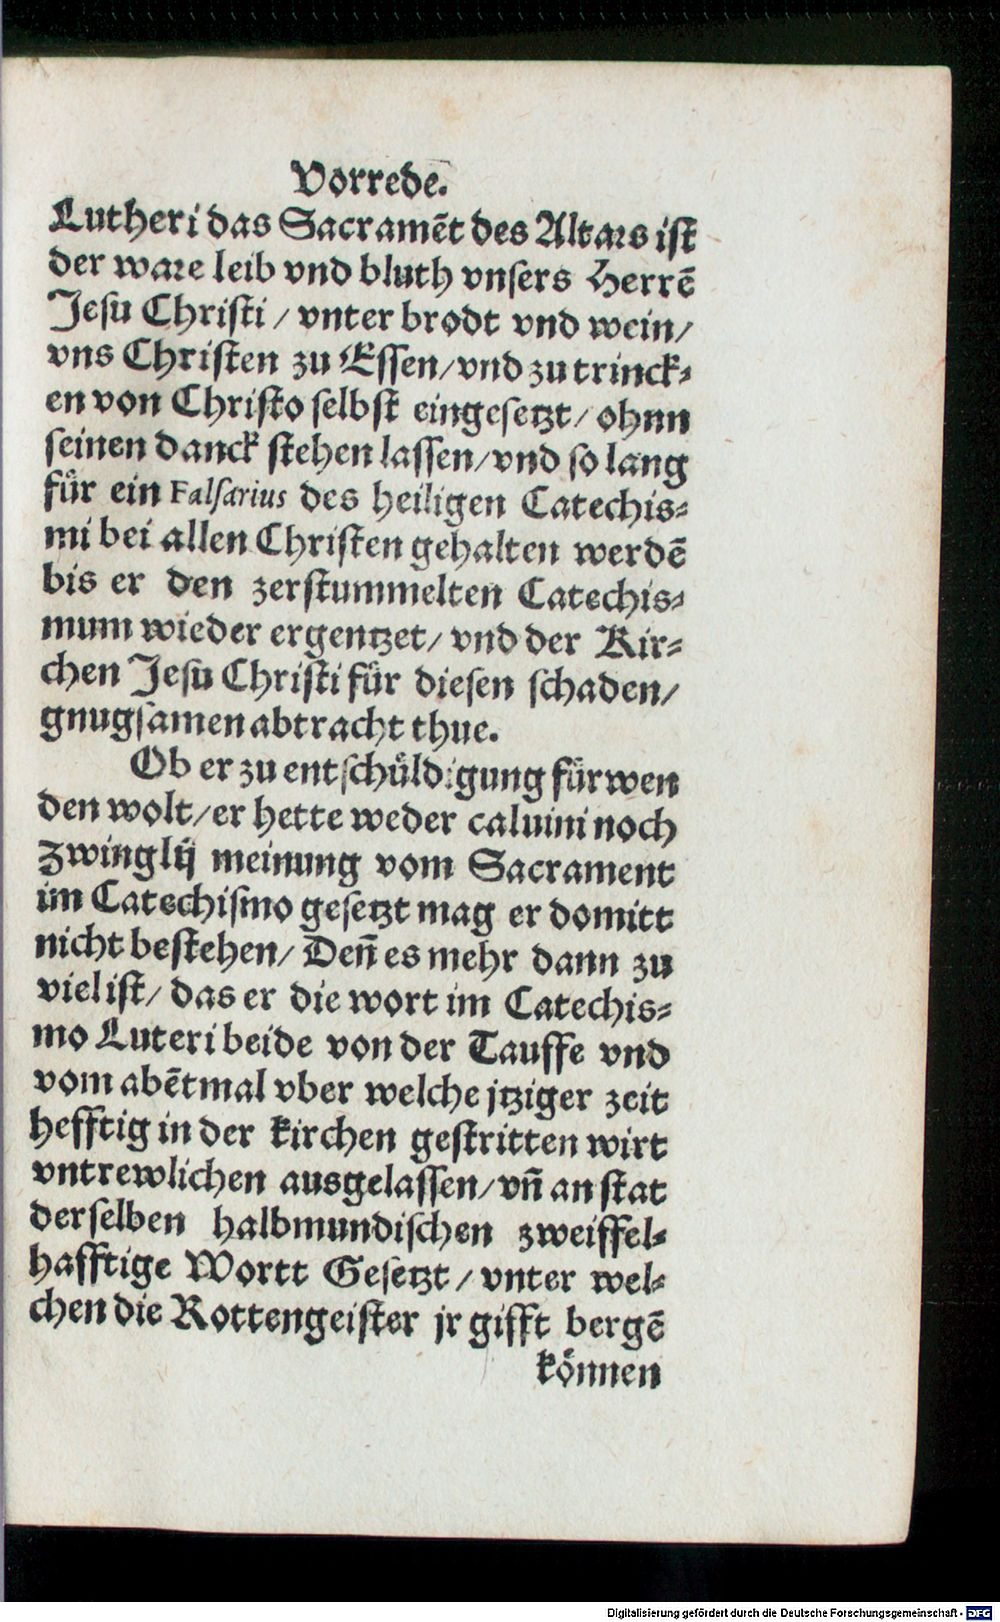 Vorrede.
Lutheri das Sacramēt des Altars ist
der ware leib vnd bluth vnsers Herrē
Jesu Christi / vnter brodt vnd wein/
vns Christen zu Essen/vnd zu trinck⸗
en von Christo selbst eingesetzt/ ohnn
seinen danck stehen lassen/vnd so lang
für ein Falsarius des heiligen Catechis⸗
mi bei allen Christen gehalten werdē
bis er den zerstummelten Catechis⸗
mum wieder ergentzet/ vnd der Kir⸗
chen Jesu Christi für diesen schaden/
gnugsamen abtracht thue.
Ob er zu entschüldigung fürwen
den wolt/er hette weder caluini noch
Zwinglij meinung vom Sacrament
im Catechismo gesetzt mag er domitt
nicht bestehen/ Deñ es mehr dann zu
viel ist/ das er die wort im Catechis⸗
mo Luteri beide von der Tauffe vnd
vom abētmal vber welche jtziger zeit
hefftig in der kirchen gestritten wirt
vntrewlichen ausgelassen/vñ an stat
derselben halbmundischen zweiffel⸗
hafftige Wortt Gesetzt / vnter wel⸗
chen die Rottengeister jr gifft bergē
können
Digitalisierung gefördert durch die Deutsche Forschungsgemeinschaft - DFG